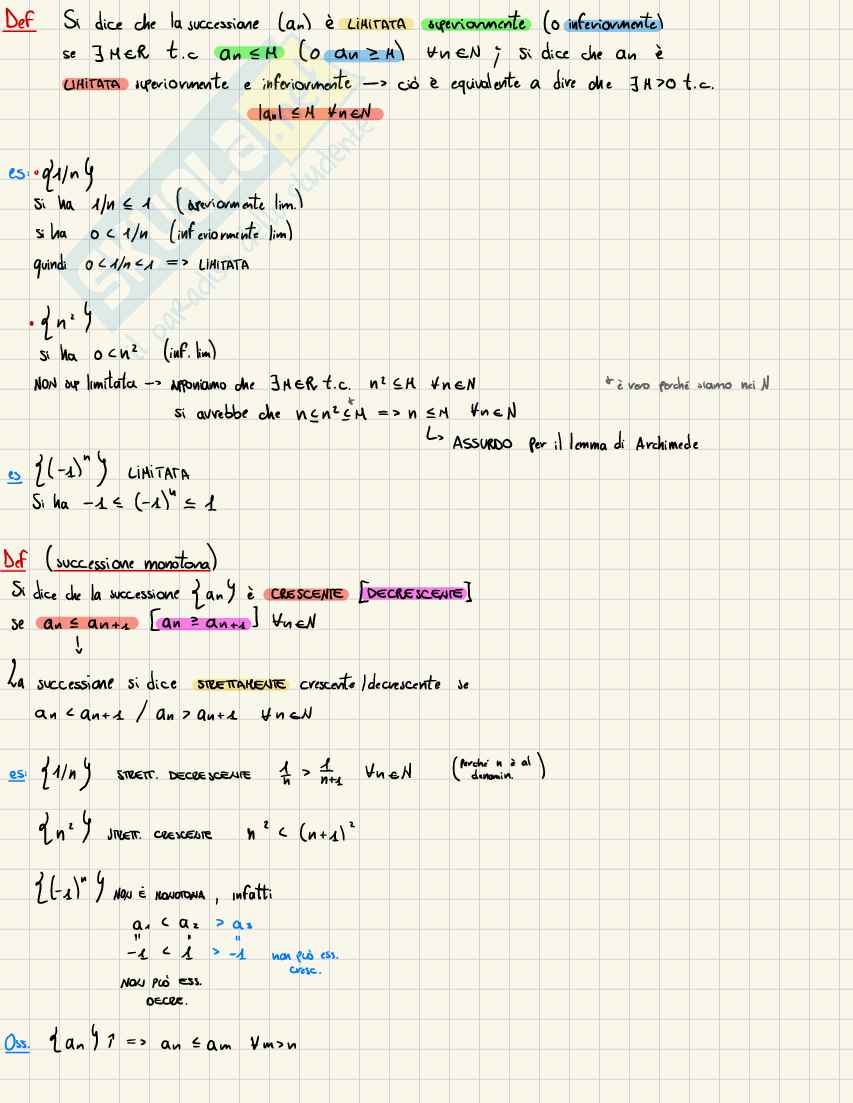 Def Si dice che la successione (an) è LIMITATA superiormente (o inferiormente)
se ∃ M∈R t.c an ≤ M (o an ≥ M) ∀n∈N ; si dice che an è
LIMITATA superiormente e inferiormente —> ciò è equivalente a dire che ∃ M>0 t.c.
|an| ≤ M ∀n∈N
es: • {1/n}
Si ha 1/n ≤ 1 (superiormente lim.)
si ha 0 < 1/n (inferiormente lim)
quindi 0 < 1/n < 1 => LIMITATA
• {n²}
si ha 0 < n² (inf. lim)
NON sup limitata —> supponiamo che ∃ M∈R t.c. n² ≤ M ∀n∈N * è vero perché siamo nei N
si avrebbe che n ≤ n² ≤* M => n ≤ M ∀n∈N
↳ ASSURDO per il lemma di Archimede
es {(-1)ⁿ} LIMITATA
Si ha -1 ≤ (-1)ⁿ ≤ 1
Def (successione monotona)
Si dice che la successione {an} è CRESCENTE [DECRESCENTE]
se an ≤ an+1 [an ≥ an+1] ∀n∈N
↓
La successione si dice STRETTAMENTE crescente/decrescente se
an < an+1 / an > an+1 ∀n∈N
es: {1/n} STRETT. DECRESCENTE 1/n > 1/n+1 ∀n∈N (perché n è al denomin.)
{n²} STRETT. CRESCENTE n² < (n+1)²
{(-1)ⁿ} NON È MONOTONA, infatti
a₁ < a₂ > a₃
" " "
-1 < 1 > -1 non può ess.
cresc.
NON PUÒ ESS.
DECRE.
Oss. {an}↑ => an ≤ am ∀m>n
SKUOLA.net
il paradiso dello studente